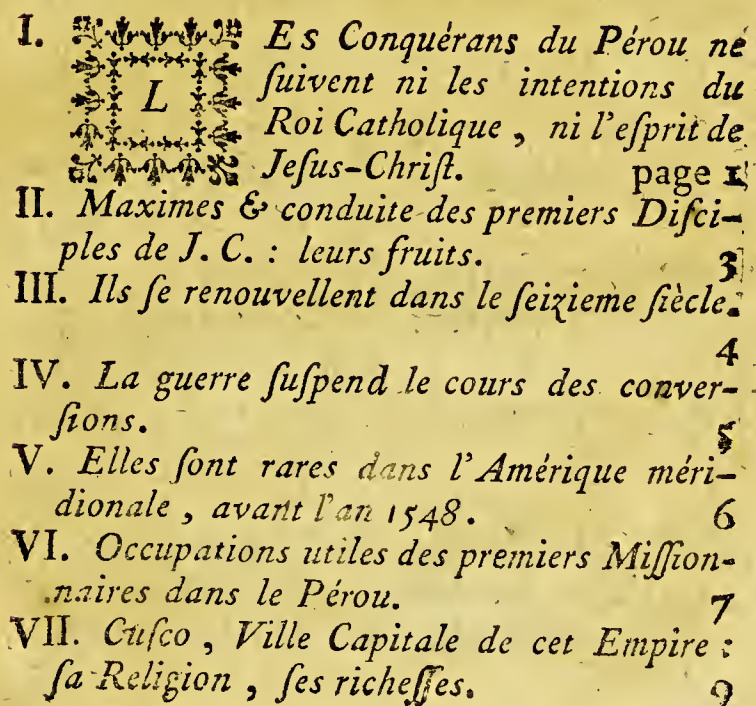 I. LEs Conquérans du Pérou ne
ſuivent ni les intentions du
Roi Catholique , ni l'eſprit de
Jeſus-Chriſt. page 1
II. Maximes & conduite des premiers Diſci-
ples de J. C. : leurs fruits. 3
III. Ils ſe renouvellent dans le ſeizieme ſiècle.
4
IV. La guerre ſuſpend le cours des conver-
ſions. 5
V. Elles ſont rares dans l'Amérique méri-
dionale , avant l'an 1548. 6
VI. Occupations utiles des premiers Miſſion-
naires dans le Pérou. 7
VII. Cuſco , Ville Capitale de cet Empire :
ſa Religion , ſes richeſſes. 9